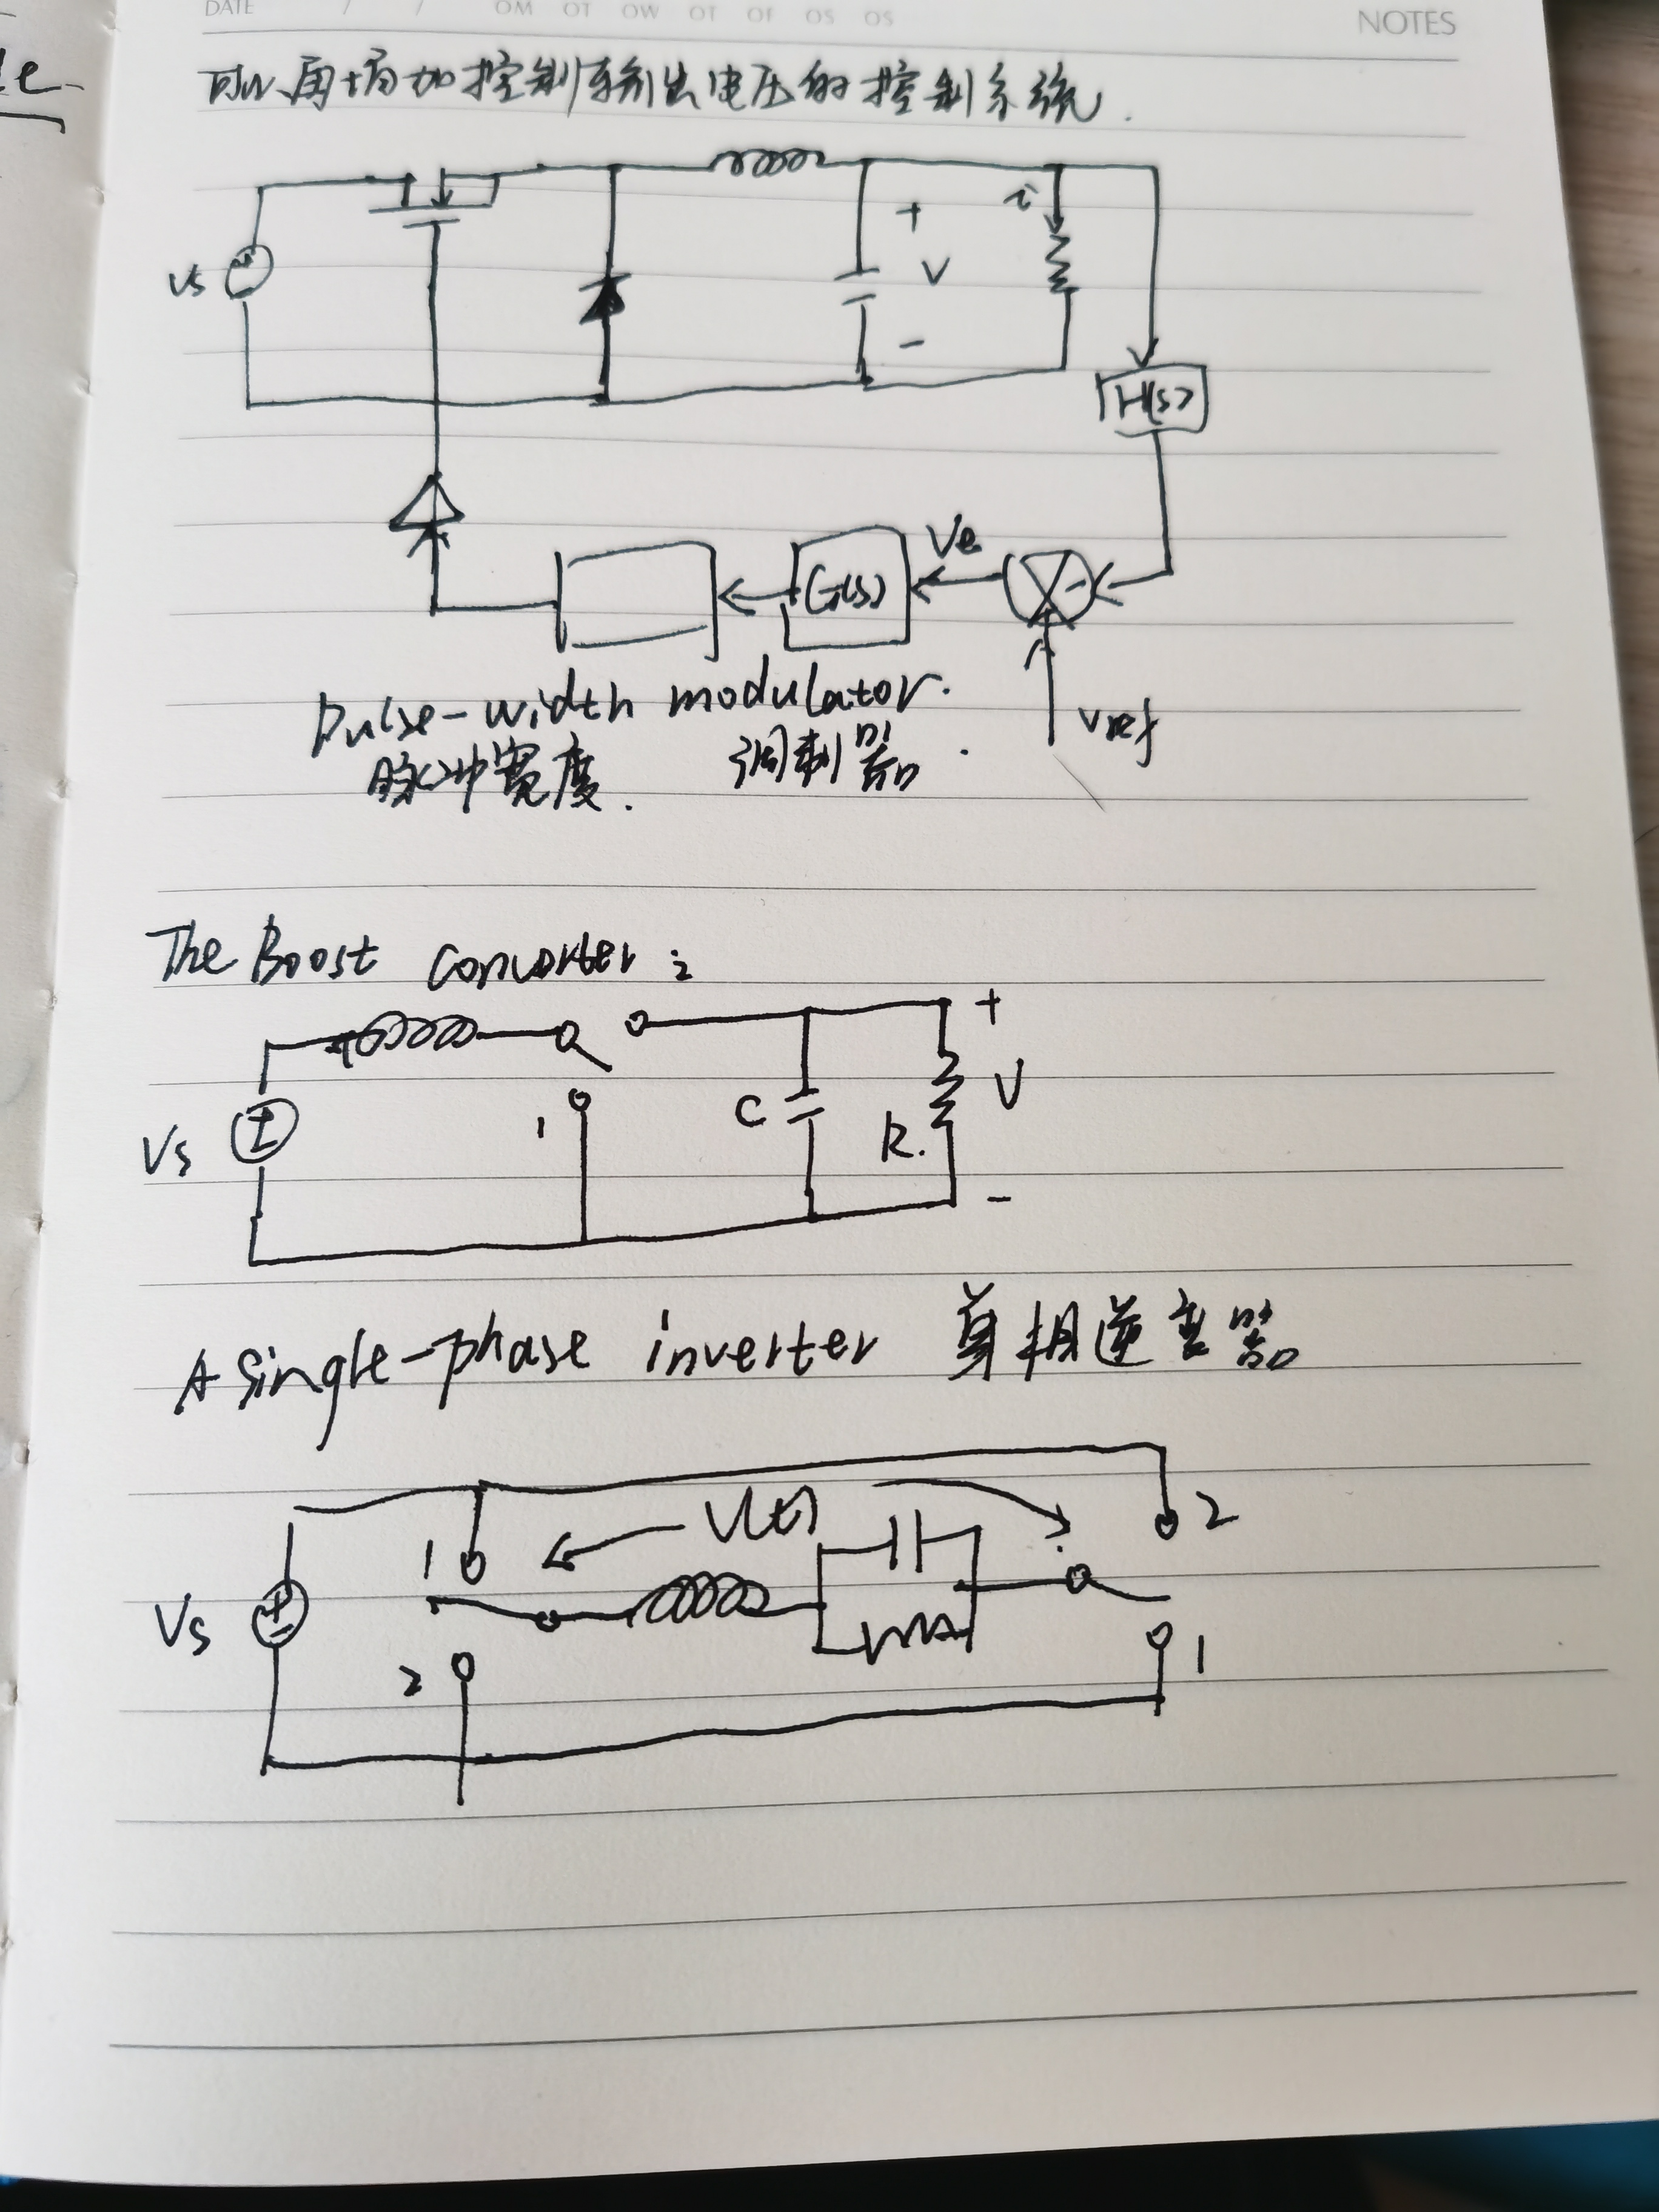 DATE / / OM OT OW OT OF OS OS
NOTES
可以再增加控制输出电压的控制系统.
Vs
+
V
-
i
H(s)
Ve
G(s)
-
Vref
Pulse-width modulator.
脉冲宽度. 调制器.
The Boost converter:
Vs
1
C
R.
+
V
-
A single-phase inverter 单相逆变器
Vs
1
2
V(t)
2
1